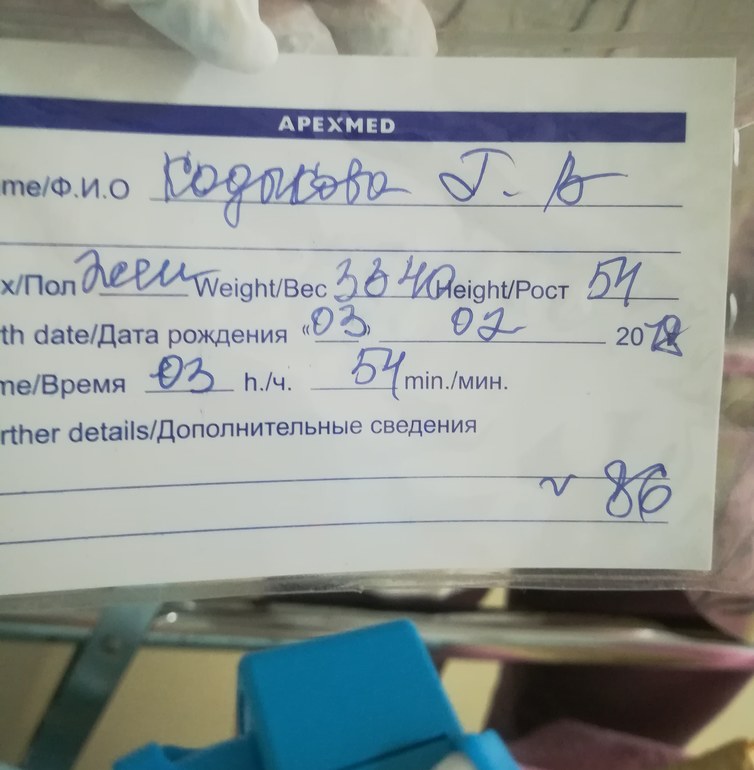 APEXMED
me/Ф.И.О Г. В
x/Пол жен Weight/Вес 3340 Height/Рост 54
th date/Дата рождения «03» 02 20
me/Время 03 h./ч. 54 min./мин.
rther details/Дополнительные сведения
v 86